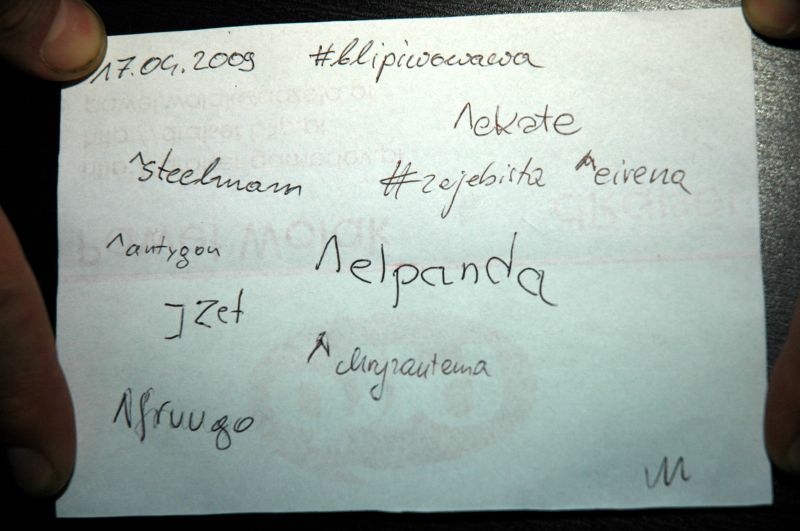 17.04.2009 #blipiwowawa
^ekate
^steelmann #zajebista ^eirena
^antygon ^elpanda
JZet
^chryzantema
^fruugo